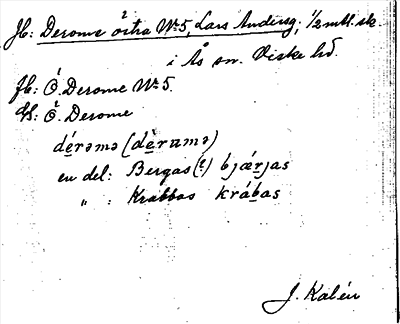 Jb: Derome östra No 5, Lars Anderss; 1/2 mtl. sk.
i Ås sn. Viske hd.
Jb: Ö. Derome No 5.
Us: Ö. Derome
dérəmə (dèrɯmə)
en del: Bergas(!) bjǽrjas
" " Krabbas krábas
J. Kalén